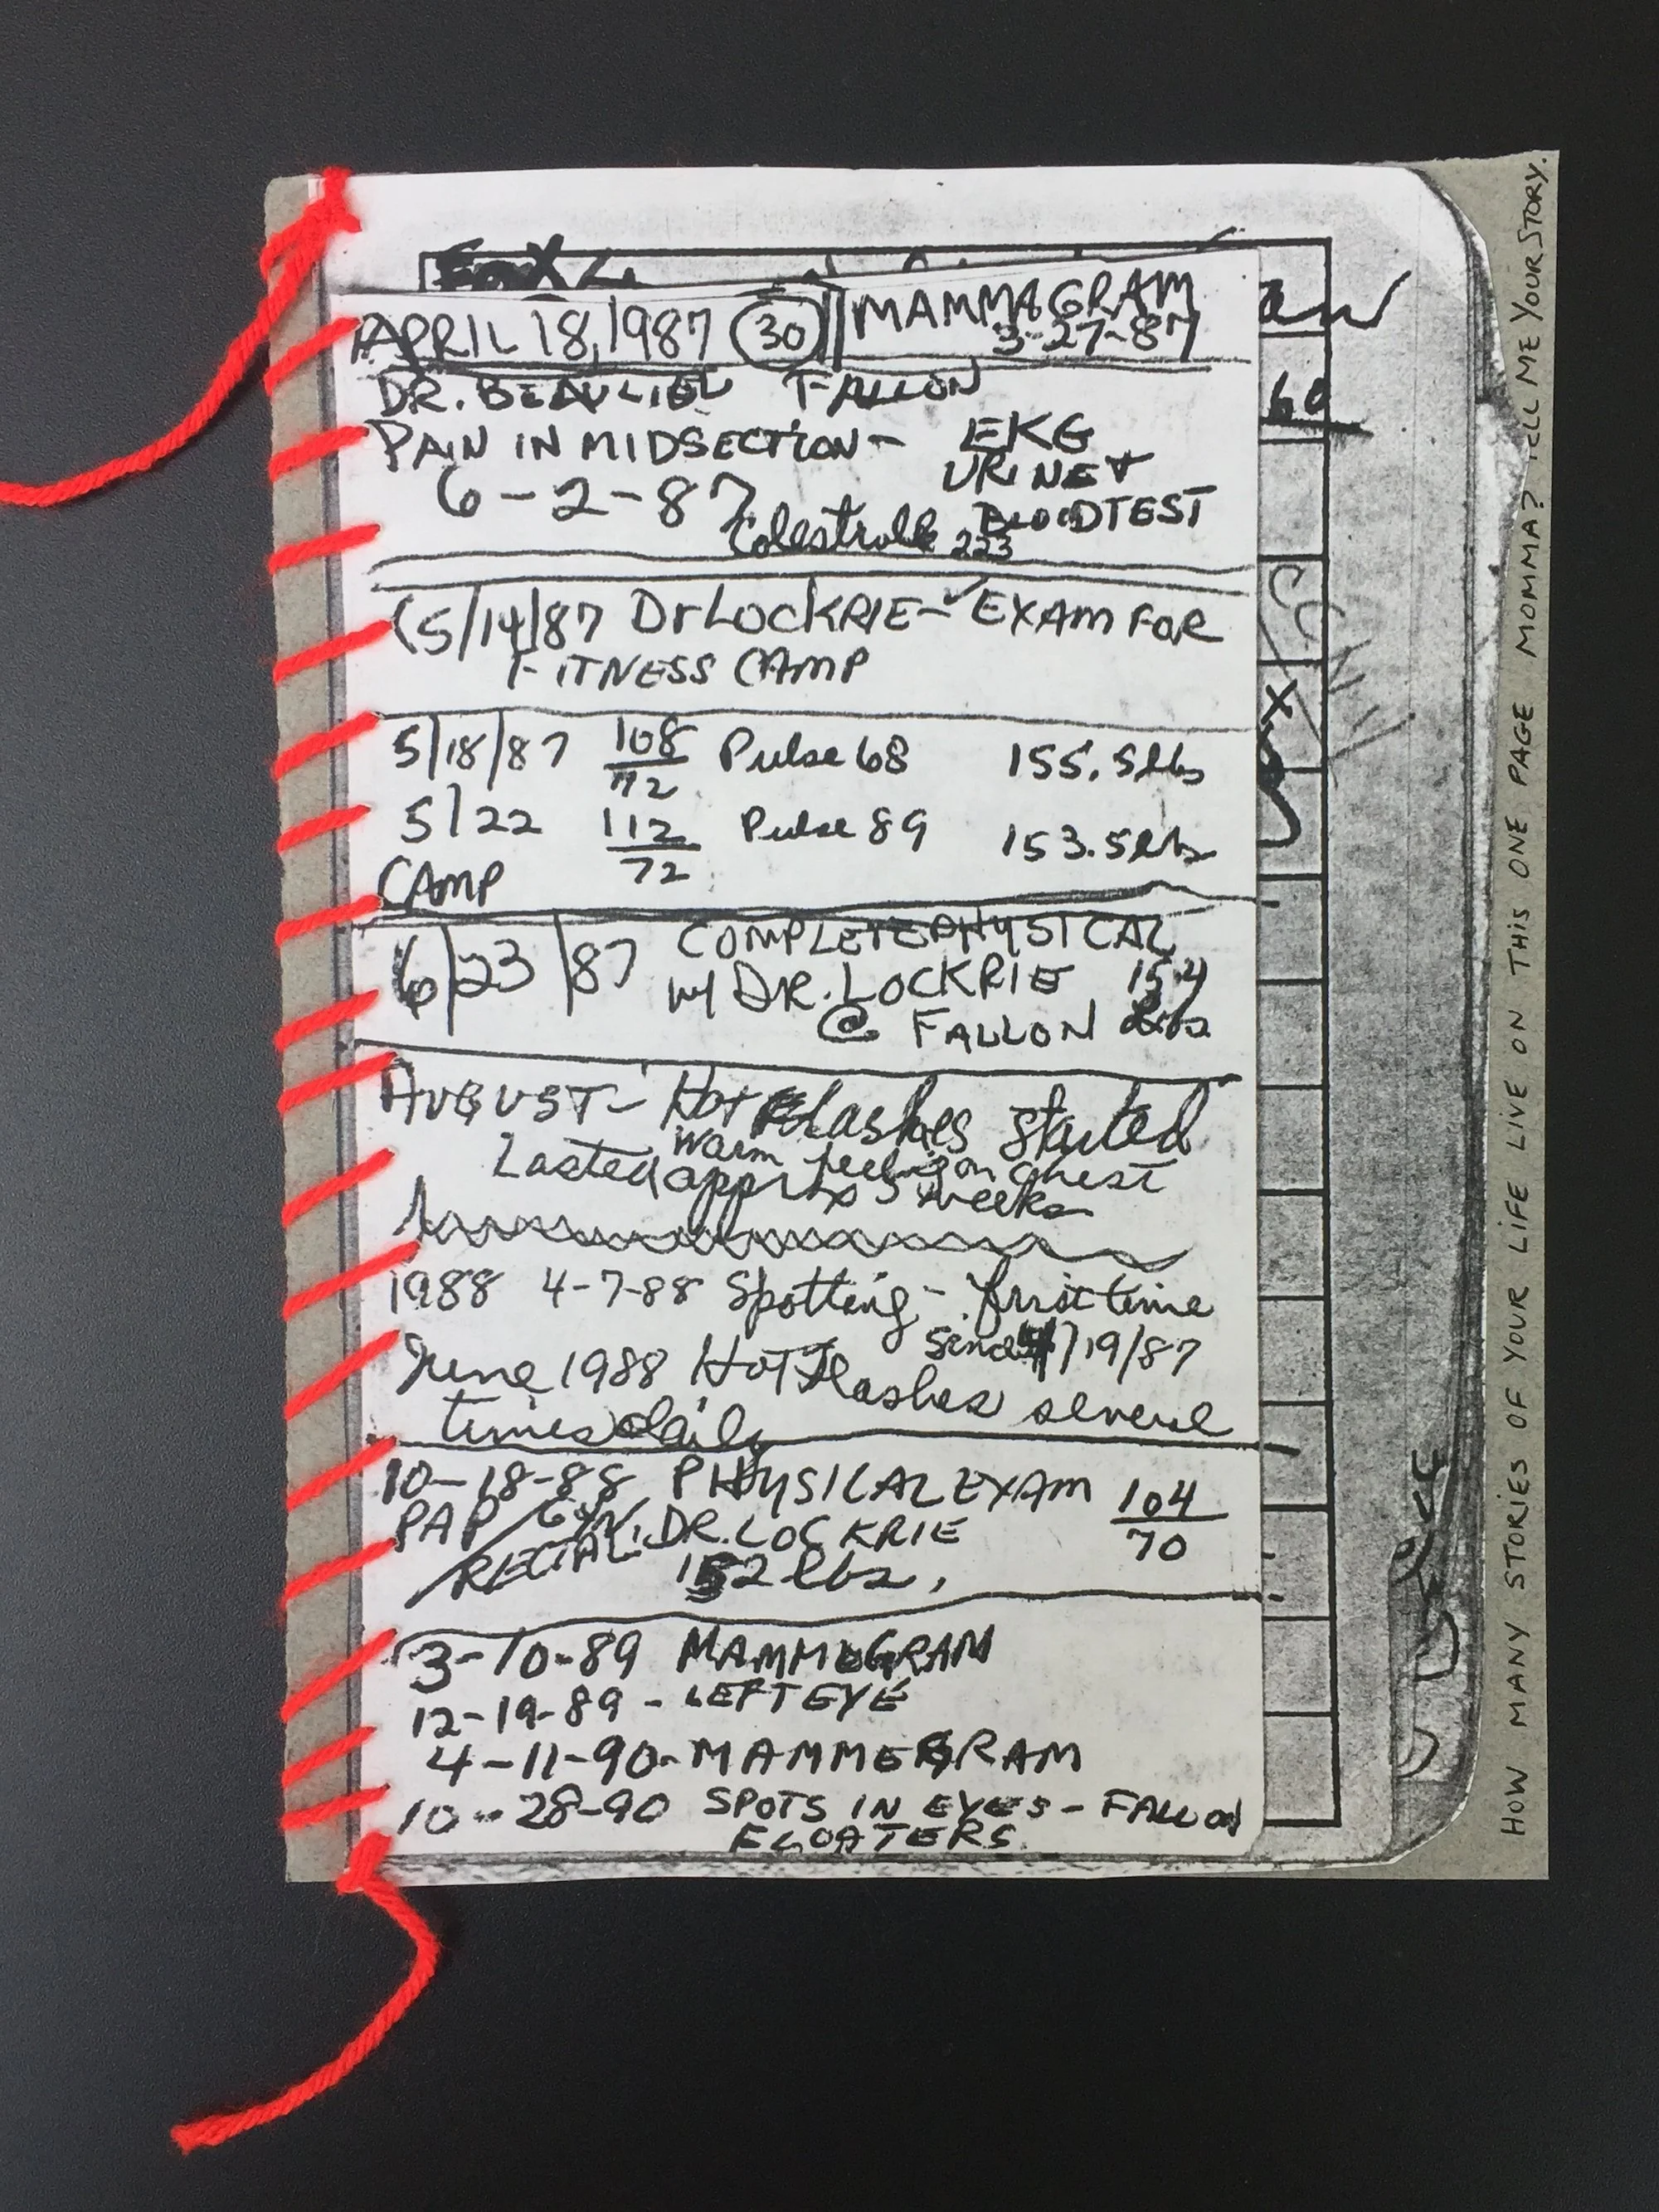 APRIL 18, 1987 30 MAMMAGRAM
3-27-87
DR. BEAULIEU FALLON
PAIN IN MIDSECTION - EKG
URINE +
6-2-87 BLOODTEST
Colestrolle 223
5/14/87 Dr LOCKRIE - EXAM FOR
FITNESS CAMP
5/18/87 108/72 Pulse 68 155.5 lbs
5/22 112/72 Pulse 89 153.5 lbs
CAMP
6/23/87 COMPLETE PHYSICAL
W/ DR. LOCKRIE 154
@ FALLON lbs
AUGUST - Hot Flashes started
warm feeling on chest
Lasted approx 3 weeks
1988 4-7-88 Spotting - first time
since /19/87
June 1988 Hot Flashes several
times daily
10-18-88 PHYSICAL EXAM 104/70
PAP / GYN. DR. LOCKRIE
RECTAL 152 lbs.
3-10-89 MAMMOGRAM
12-19-89 - LEFT EYE
4-11-90 - MAMMEGRAM
10-28-90 SPOTS IN EYES - FALLON
FLOATERS
aw
60
X
HOW MANY STORIES OF YOUR LIFE LIVE ON THIS ONE PAGE MOMMA? TELL ME YOUR STORY.